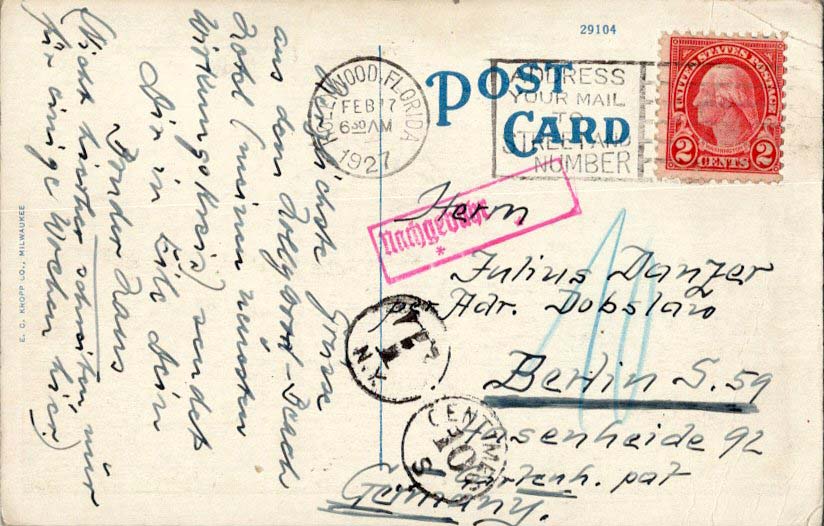 29104
POST CARD
HOLLYWOOD, FLORIDA
FEB 17
6 30 AM
1927
ADDRESS
YOUR MAIL
TO
STREET AND
NUMBER
UNITED STATES POSTAGE
WASHINGTON
2 CENTS 2
Herzlichste Grüsse
aus dem Hollywood-Beach
Hotel (meinem neuesten
Wirkungskreis) sendet
Dir in Eile Dein
Bruder Hans
(Nicht hierher schreiben, nur
für einige Wochen hier)
Nachgebühr
*
Herrn
Julius Danzer
per Adr. Dobslaw
Berlin S. 59
Hasenheide 92
Gartenh. pat
Germany.
10
N.Y.
T
CENTIMES
10
S
E. C. KROPP CO., MILWAUKEE